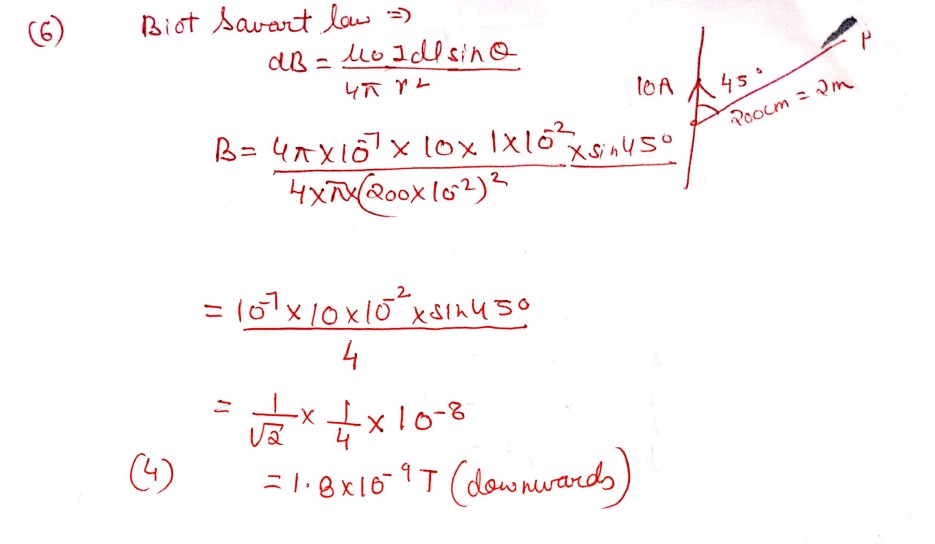 (6) Biot Savart law ⇒
dB = μo I dl sin θ / 4π r²
10A 45° P
200cm = 2m
B = 4π×10⁻⁷ × 10 × 1×10⁻² × sin 45° / 4×π×(200×10⁻²)²
= 10⁻⁷ × 10 × 10⁻² × sin 45° / 4
= 1/√2 × 1/4 × 10⁻⁸
(4) = 1.8×10⁻⁹ T (downwards)